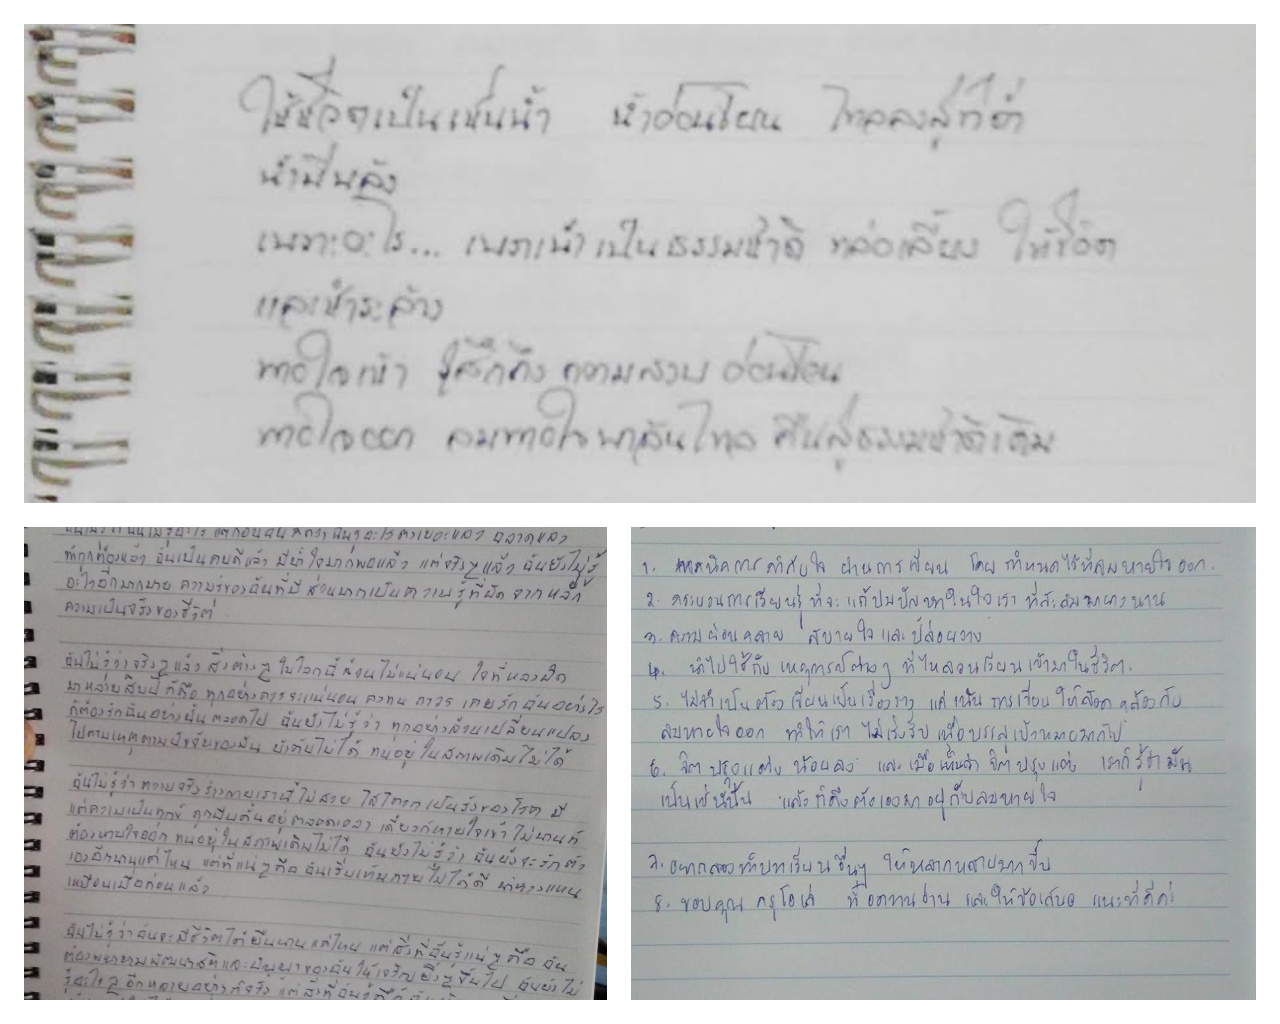 ให้ชีวิตเป็นเช่นน้ำ น้ำอ่อนโยน ไหลลงสู่ที่ต่ำ
น้ำมีพลัง
เพราะอะไร... เพราะน้ำเป็นธรรมชาติ หล่อเลี้ยง ให้ชีวิต
และชำระล้าง
หายใจเข้า รู้สึกถึง ความสงบ อ่อนโยน
หายใจออก ลมหายใจพาฉันไหล คืนสู่ธรรมชาติเดิม
ทำถูกต้องแล้ว ฉันเป็นคนดีแล้ว มีน้ำใจมากพอแล้ว แต่จริงๆ แล้ว ฉันยังไม่รู้
อะไรอีกมากมาย ความรู้ของฉันที่มี ส่วนมากเป็นความรู้ที่ผิด จากหลัก
ความเป็นจริงของชีวิต
ฉันไม่รู้ว่าจริงๆ แล้ว สิ่งต่างๆ ในโลกนี้ล้วนไม่แน่นอน ใจที่หลงผิด
มาหลายสิบปี ก็คือ ทุกอย่างควรจะแน่นอน คงทน ถาวร เคยรักฉันอย่างไร
ก็ต้องรักฉันอย่างนั้น ตลอดไป ฉันยังไม่รู้ว่า ทุกอย่างล้วนเปลี่ยนแปลง
ไปตามเหตุตามปัจจัยของมัน บังคับไม่ได้ ทนอยู่ในสภาพเดิมไม่ได้
ฉันไม่รู้ว่า ความจริงร่างกายเรานี้ไม่สวย ใส่โครก เป็นรังของโรค มี
แต่ความเป็นทุกข์ ถูกบีบคั้นอยู่ตลอดเวลา เดี๋ยวก็หายใจเข้า ไม่นานก็
ต้องหายใจออก ทนอยู่ในสภาพเดิมไม่ได้ ฉันยังไม่รู้ว่า ฉันยังจะรักตัว
เองอีกนานแค่ไหน แต่ที่แน่ๆ คือ ฉันเริ่ม
เหมือนเมื่อก่อนแล้ว
ฉันไม่รู้ว่าฉันจะมีชีวิตได้ยืนนานแค่ไหน แต่สิ่งที่ฉันรู้แน่ๆ คือ ฉัน
ต้องพยายามพัฒนาสติและปัญญาของฉันให้เจริญยิ่งๆ ขึ้นไป ฉันยังไม่
รู้อะไรๆ อีกหลายอย่าง แต่สิ่งที่ฉันรู้คือ
1. เทคนิคการกำกับใจ ผ่านการเขียน โดย กำหนดไว้ที่ลมหายใจออก.
2. กระบวนการเรียนรู้ที่จะ แก้ปมปัญหาในใจเรา ที่สะสมมายาวนาน
3. ความผ่อนคลาย สบายใจ และ ปล่อยวาง
4. นำไปใช้กับ เหตุการณ์ต่างๆ ที่ไหลวนเวียนเข้ามาในชีวิต.
5. ไม่จำเป็นต้องเขียนเป็นเรื่องราว แค่ เน้น การเขียน ให้สอดคล้องกับ
ลมหายใจออก ทำให้เรา ไม่เร่งรีบ เพื่อบรรลุเป้าหมายมากไป
6. จิตปรุงแต่งน้อยลง และ เมื่อเห็นว่า จิตปรุงแต่ง เราก็รู้ว่ามัน
เป็นเช่นนั้น แล้วก็ดึงตัวเองมาอยู่กับลมหายใจ
7. อยากลองทำบทเรียนอื่นๆ ให้หลากหลายมากขึ้น
8. ขอบคุณ ครูโอเล่ ที่อดทนอ่าน และให้ข้อเสนอ แนะที่ดีค่ะ